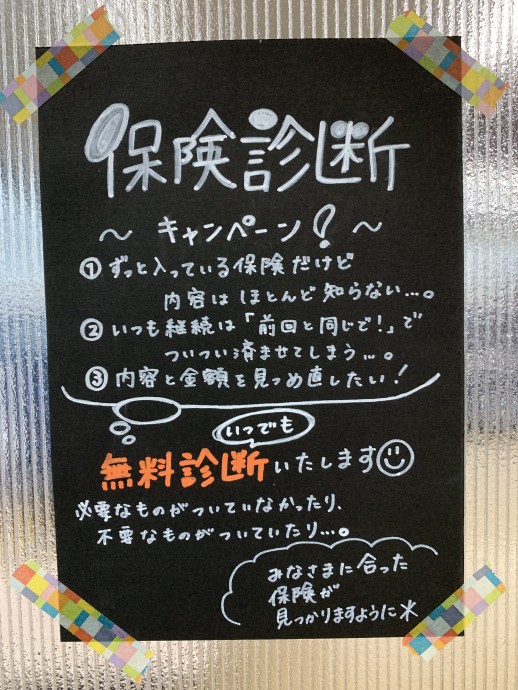 保険診断
～ キャンペーン! ～
① ずっと入っている保険だけど
内容はほとんど知らない…。
② いつも継続は「前回と同じで!」で
ついつい済ませてしまう…。
③ 内容と金額を見つめ直したい!
いつでも
無料診断いたします
必要なものがついていなかったり、
不要なものがついていたり…。
みなさまに合った
保険が
見つかりますように